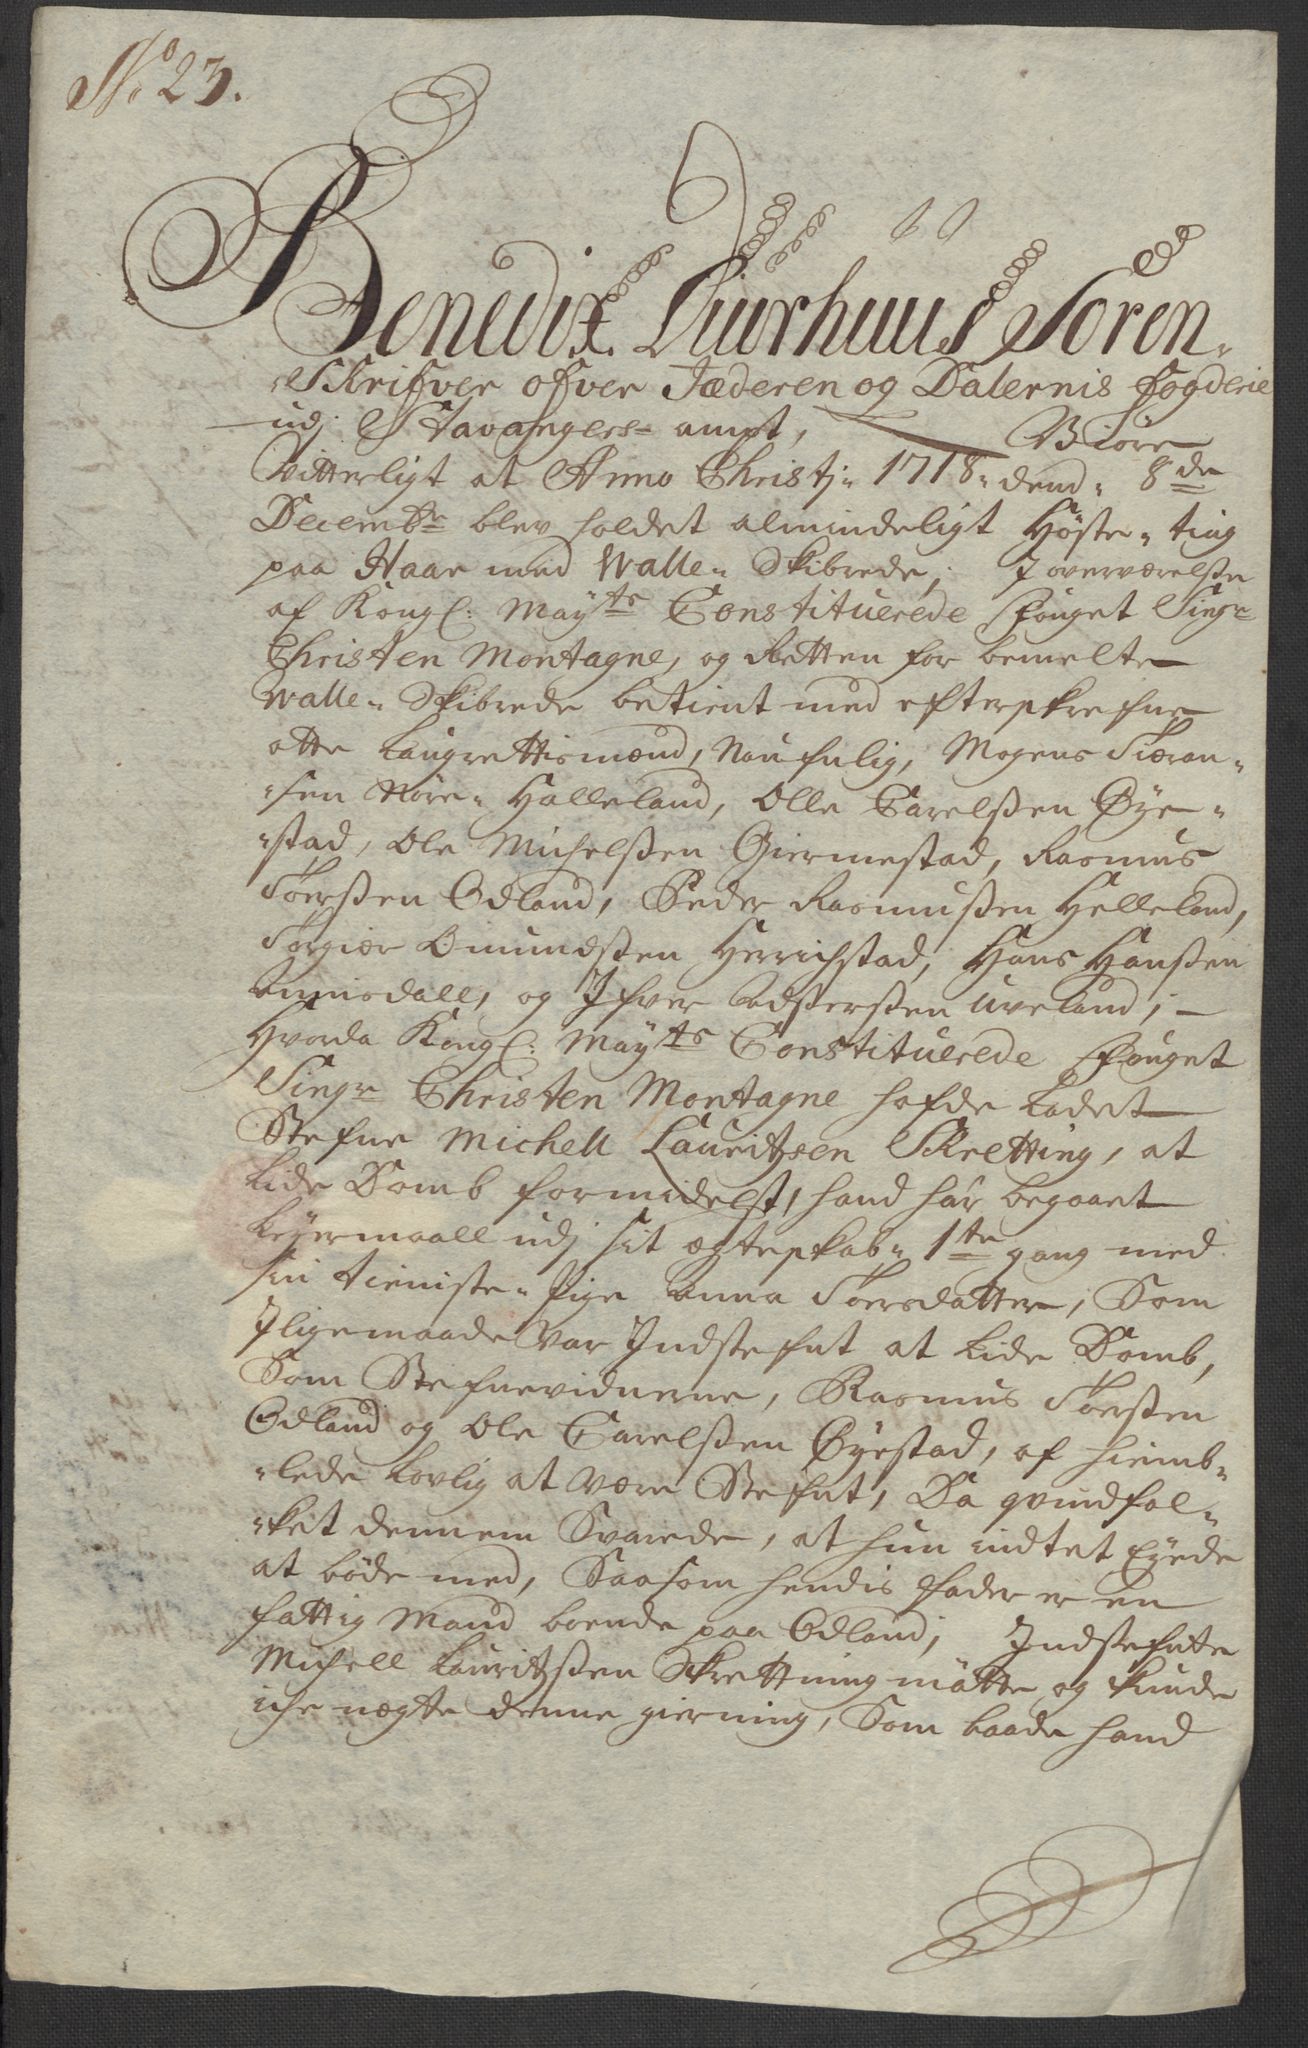 No 23.
Benedix Diurhuus Soren-
Skrifver ofver Jæderen og Dalernis fogderie
udj Stavangers- ampt, Giøre
Vitterligt at Anno Christj- 1718- dend- 8de
Decembr blev holdet almindeligt Høste- ting
paa Haar med Walle- Skibrede, J overværelsse
af Kongl: Mayts Constituerede Fouget Singr
Christen Montagne, og Retten for bemelte
Walle- Skibrede betient med efterskrefne
otte Laugrettismænd, Naufnlig, Mogens Siøran-
-sen Nøre- Halleland, Olle Carelssen Øye-
-stad, Ole Michelssen Giermestad, Rasmus
Toerssen Odland, Peder Rasmussen Helleland,
Torgier Omundssen Herrichstad, Hans Hanssen
Aniisdall, og Jfver Adserssen Uveland,
Hvorda Kongl: Mayts Constituerede Fouget
Singr Christen Montagne hafde Ladet
Stefne Michell Lauritzsen Skretting, at
Lide Domb formidelst hand har begaaet
Leyermaall udj sit ægteskab- 1te gang med
sin tieniste- Pige Anna Toersdatter, Som
Jligemaade Var Jndstefnt at Lide Domb,
Som Stefnevidnerne, Rasmus Toerssen
Odland og Ole Carelssen Øyestad, af hiemb-
-lede Lovlig at være Stefnt, Da qvindfol-
-ket dennem Svarede, at hun indtet Eyede
at bøde med, Saasom hendis Fader er en
fattig Mand boende paa Odland, Jndstefnte
Michell Lauritzssen Skrettning møtte og kunde
iche nægte denne gierning, Som baade hand